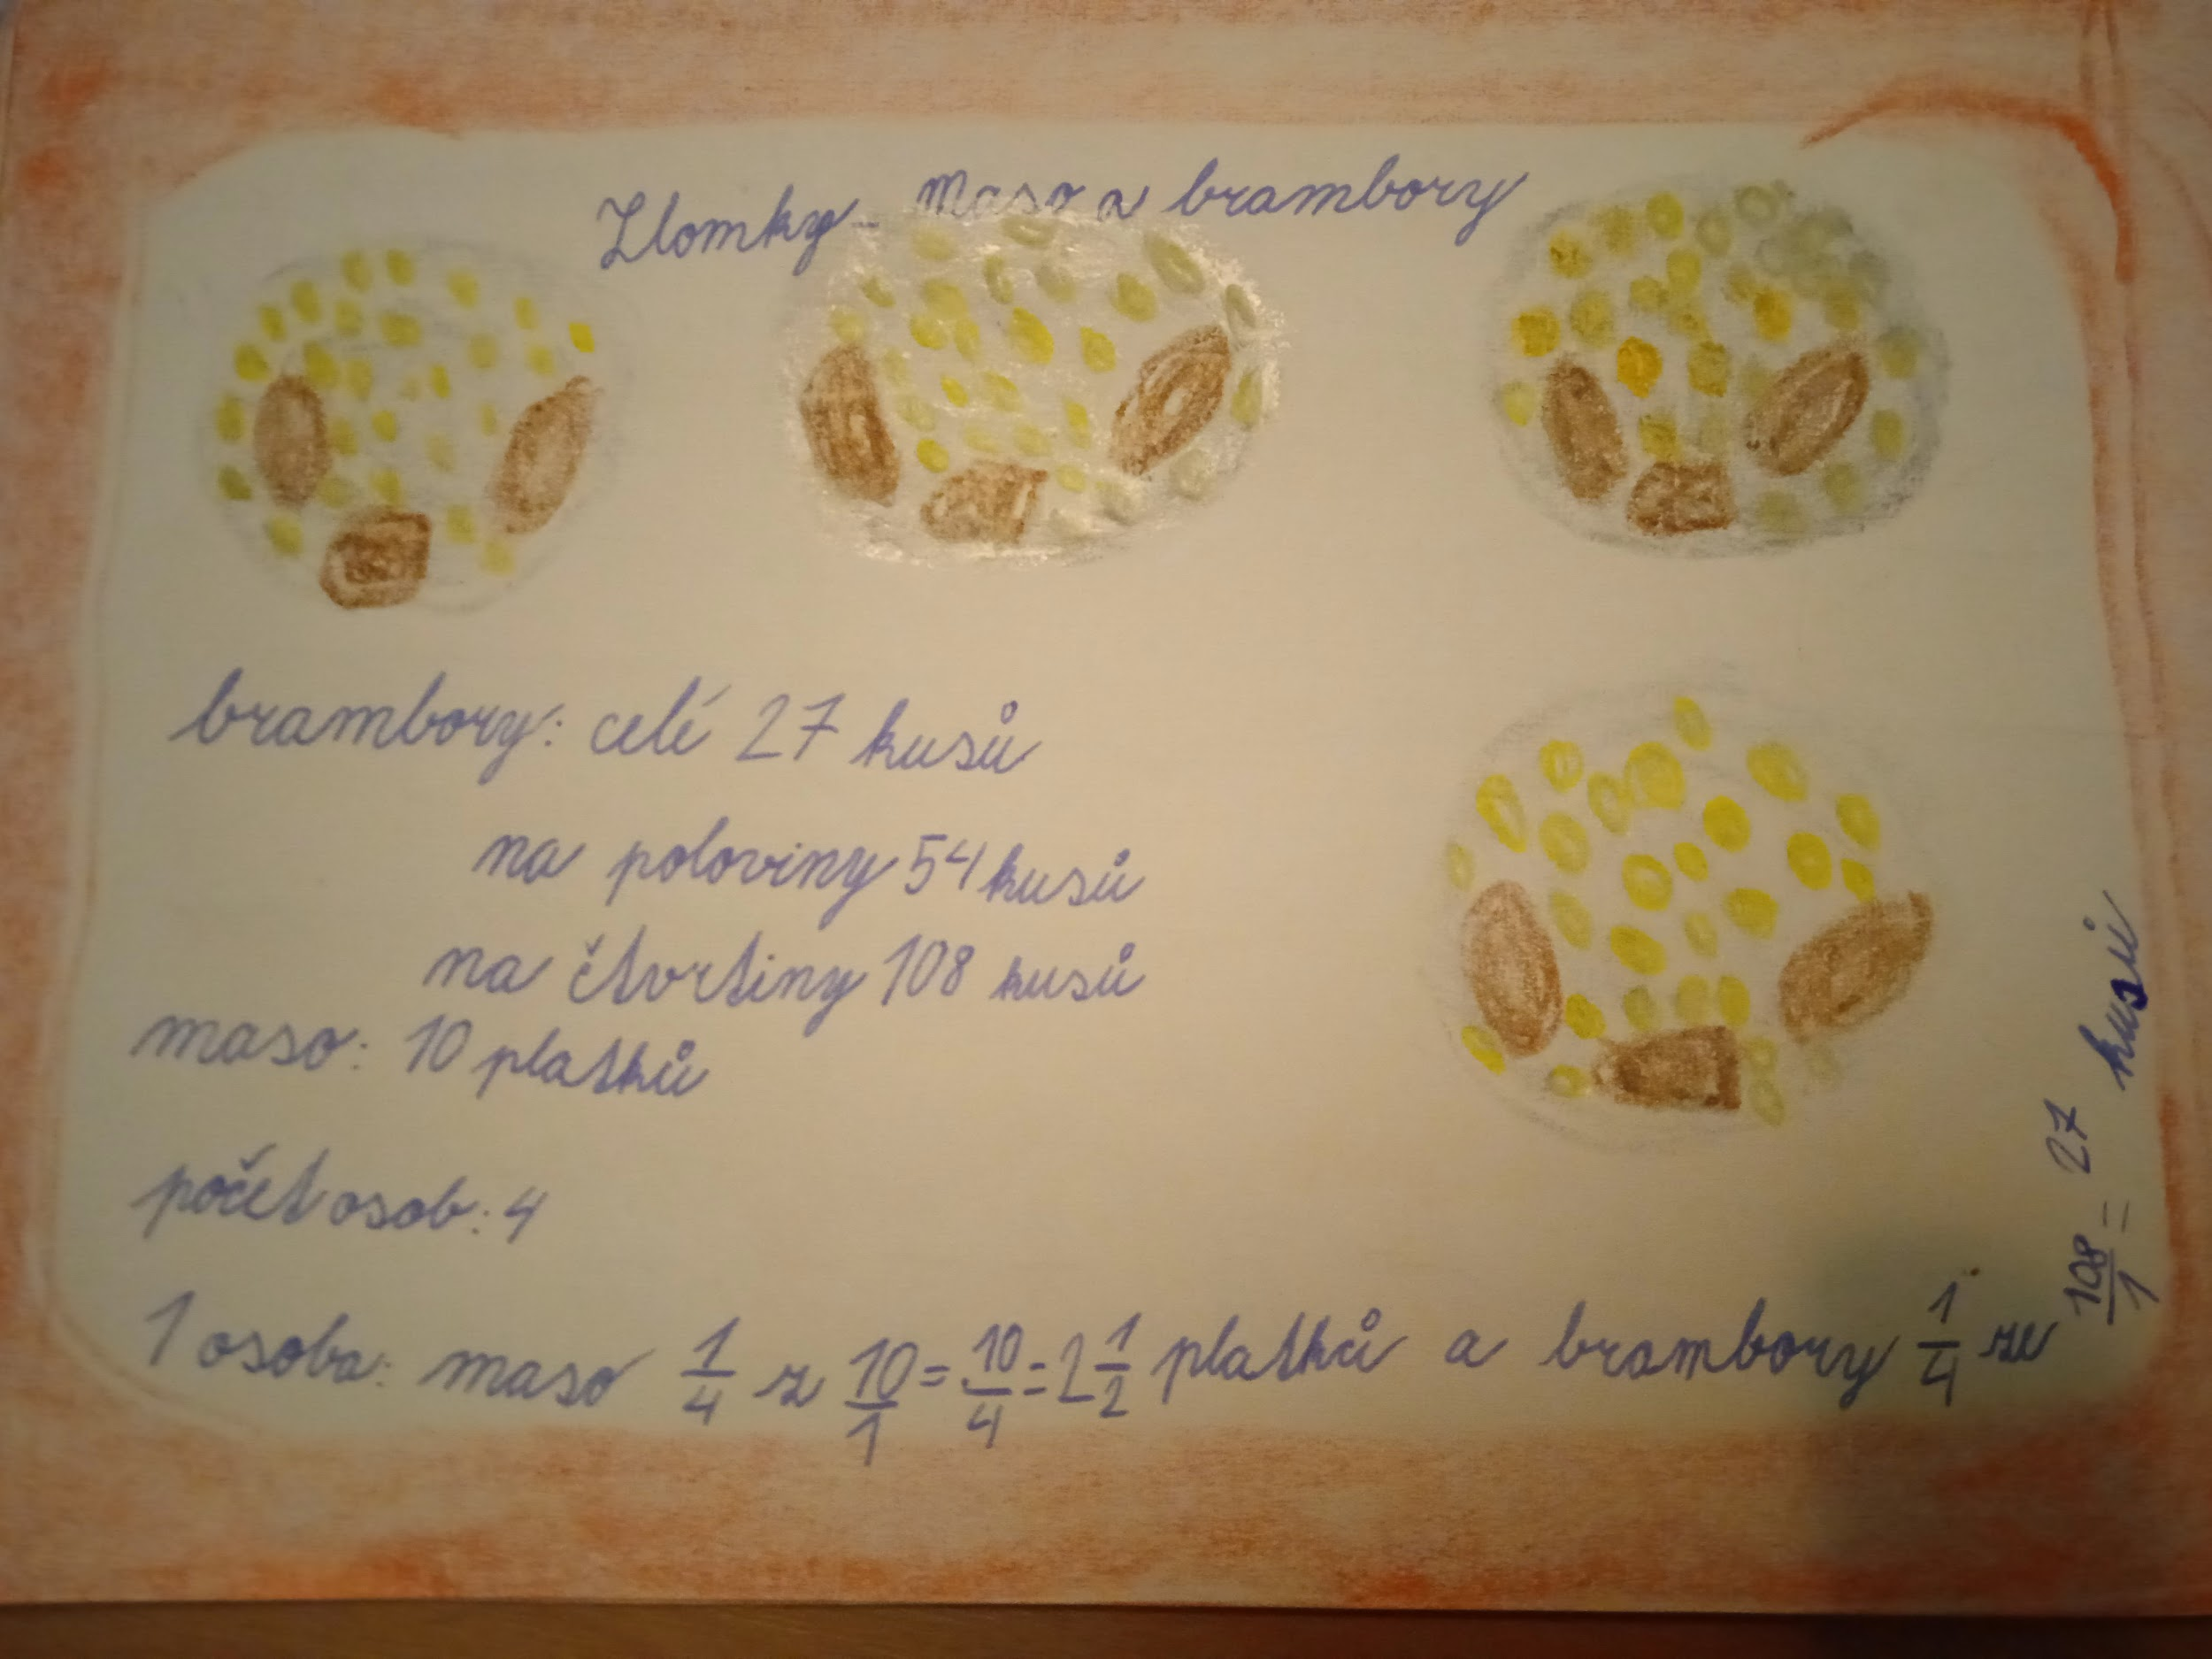 Zlomky - maso a brambory
brambory: celé 27 kusů
na poloviny 54 kusů
na čtvrtiny 108 kusů
maso: 10 platků
počet osob: 4
1 osoba: maso 1/4 z 10/1 = 10/4 = 2 1/2 platků a brambory 1/4 ze 108/1 = 27 kusů